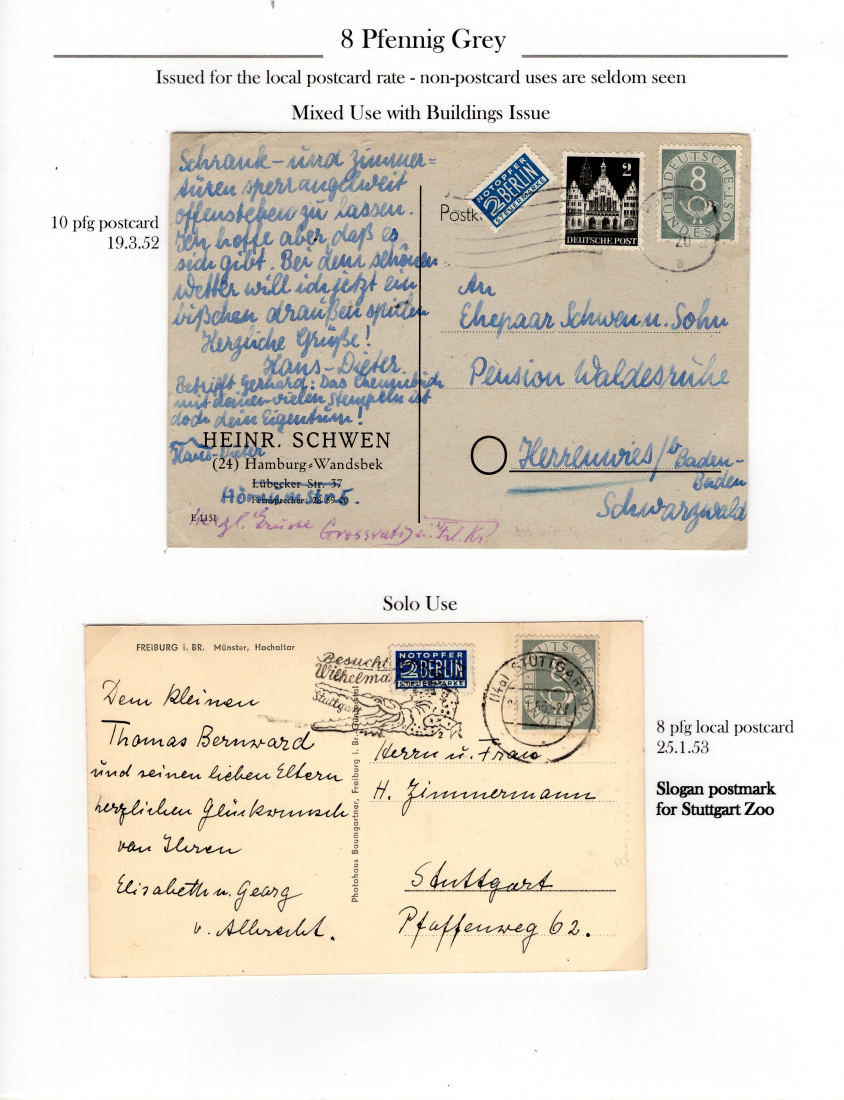 8 Pfennig Grey
Issued for the local postcard rate - non-postcard uses are seldom seen
Mixed Use with Buildings Issue
10 pfg postcard
19.3.52
Schrank- und Zimmer=
türen sperrangelweit
offenstehen zu lassen.
Ich hoffe aber, daß es
sich gibt. Bei dem schönen
Wetter will ich jetzt ein
bißchen draußen spielen
Herzliche Grüße!
Hans-Dieter.
Betrifft Gerhard: Das
mit deinen vielen Stempeln ist
doch dein Eigentum!
Hans-Dieter
HEINR. SCHWEN
(24) Hamburg-Wandsbek
Lübecker Str. 37
Fernsprecher: 28 59 00
E 1151
Herzl. Grüsse Grossvati u. Frl. Kr.
Postk
NOTOPFER
2 BERLIN
STEUERMARKE
2
DEUTSCHE POST
DEUTSCHE
BUNDESPOST
8
20
a
An
Ehepaar Schwen u. Sohn
Pension Waldesruhe
Herrenwies/b Baden-
Baden
Schwarzwald
Solo Use
FREIBURG i. BR. Münster, Hochaltar
Dem kleinen
Thomas Bernward
und seinen lieben Eltern
herzlichen Glückwunsch
von Ihren
Elisabeth u. Georg
v. Albrecht.
Photohaus Baumgartner, Freiburg i. Br.
Besucht
Wilhelma
Stuttgart
NOTOPFER
2 BERLIN
STEUERMARKE
8
(14a) STUTTGART
Herrn u. Frau
H. Zimmermann
Stuttgart
Pfaffenweg 62.
8 pfg local postcard
25.1.53
Slogan postmark
for Stuttgart Zoo